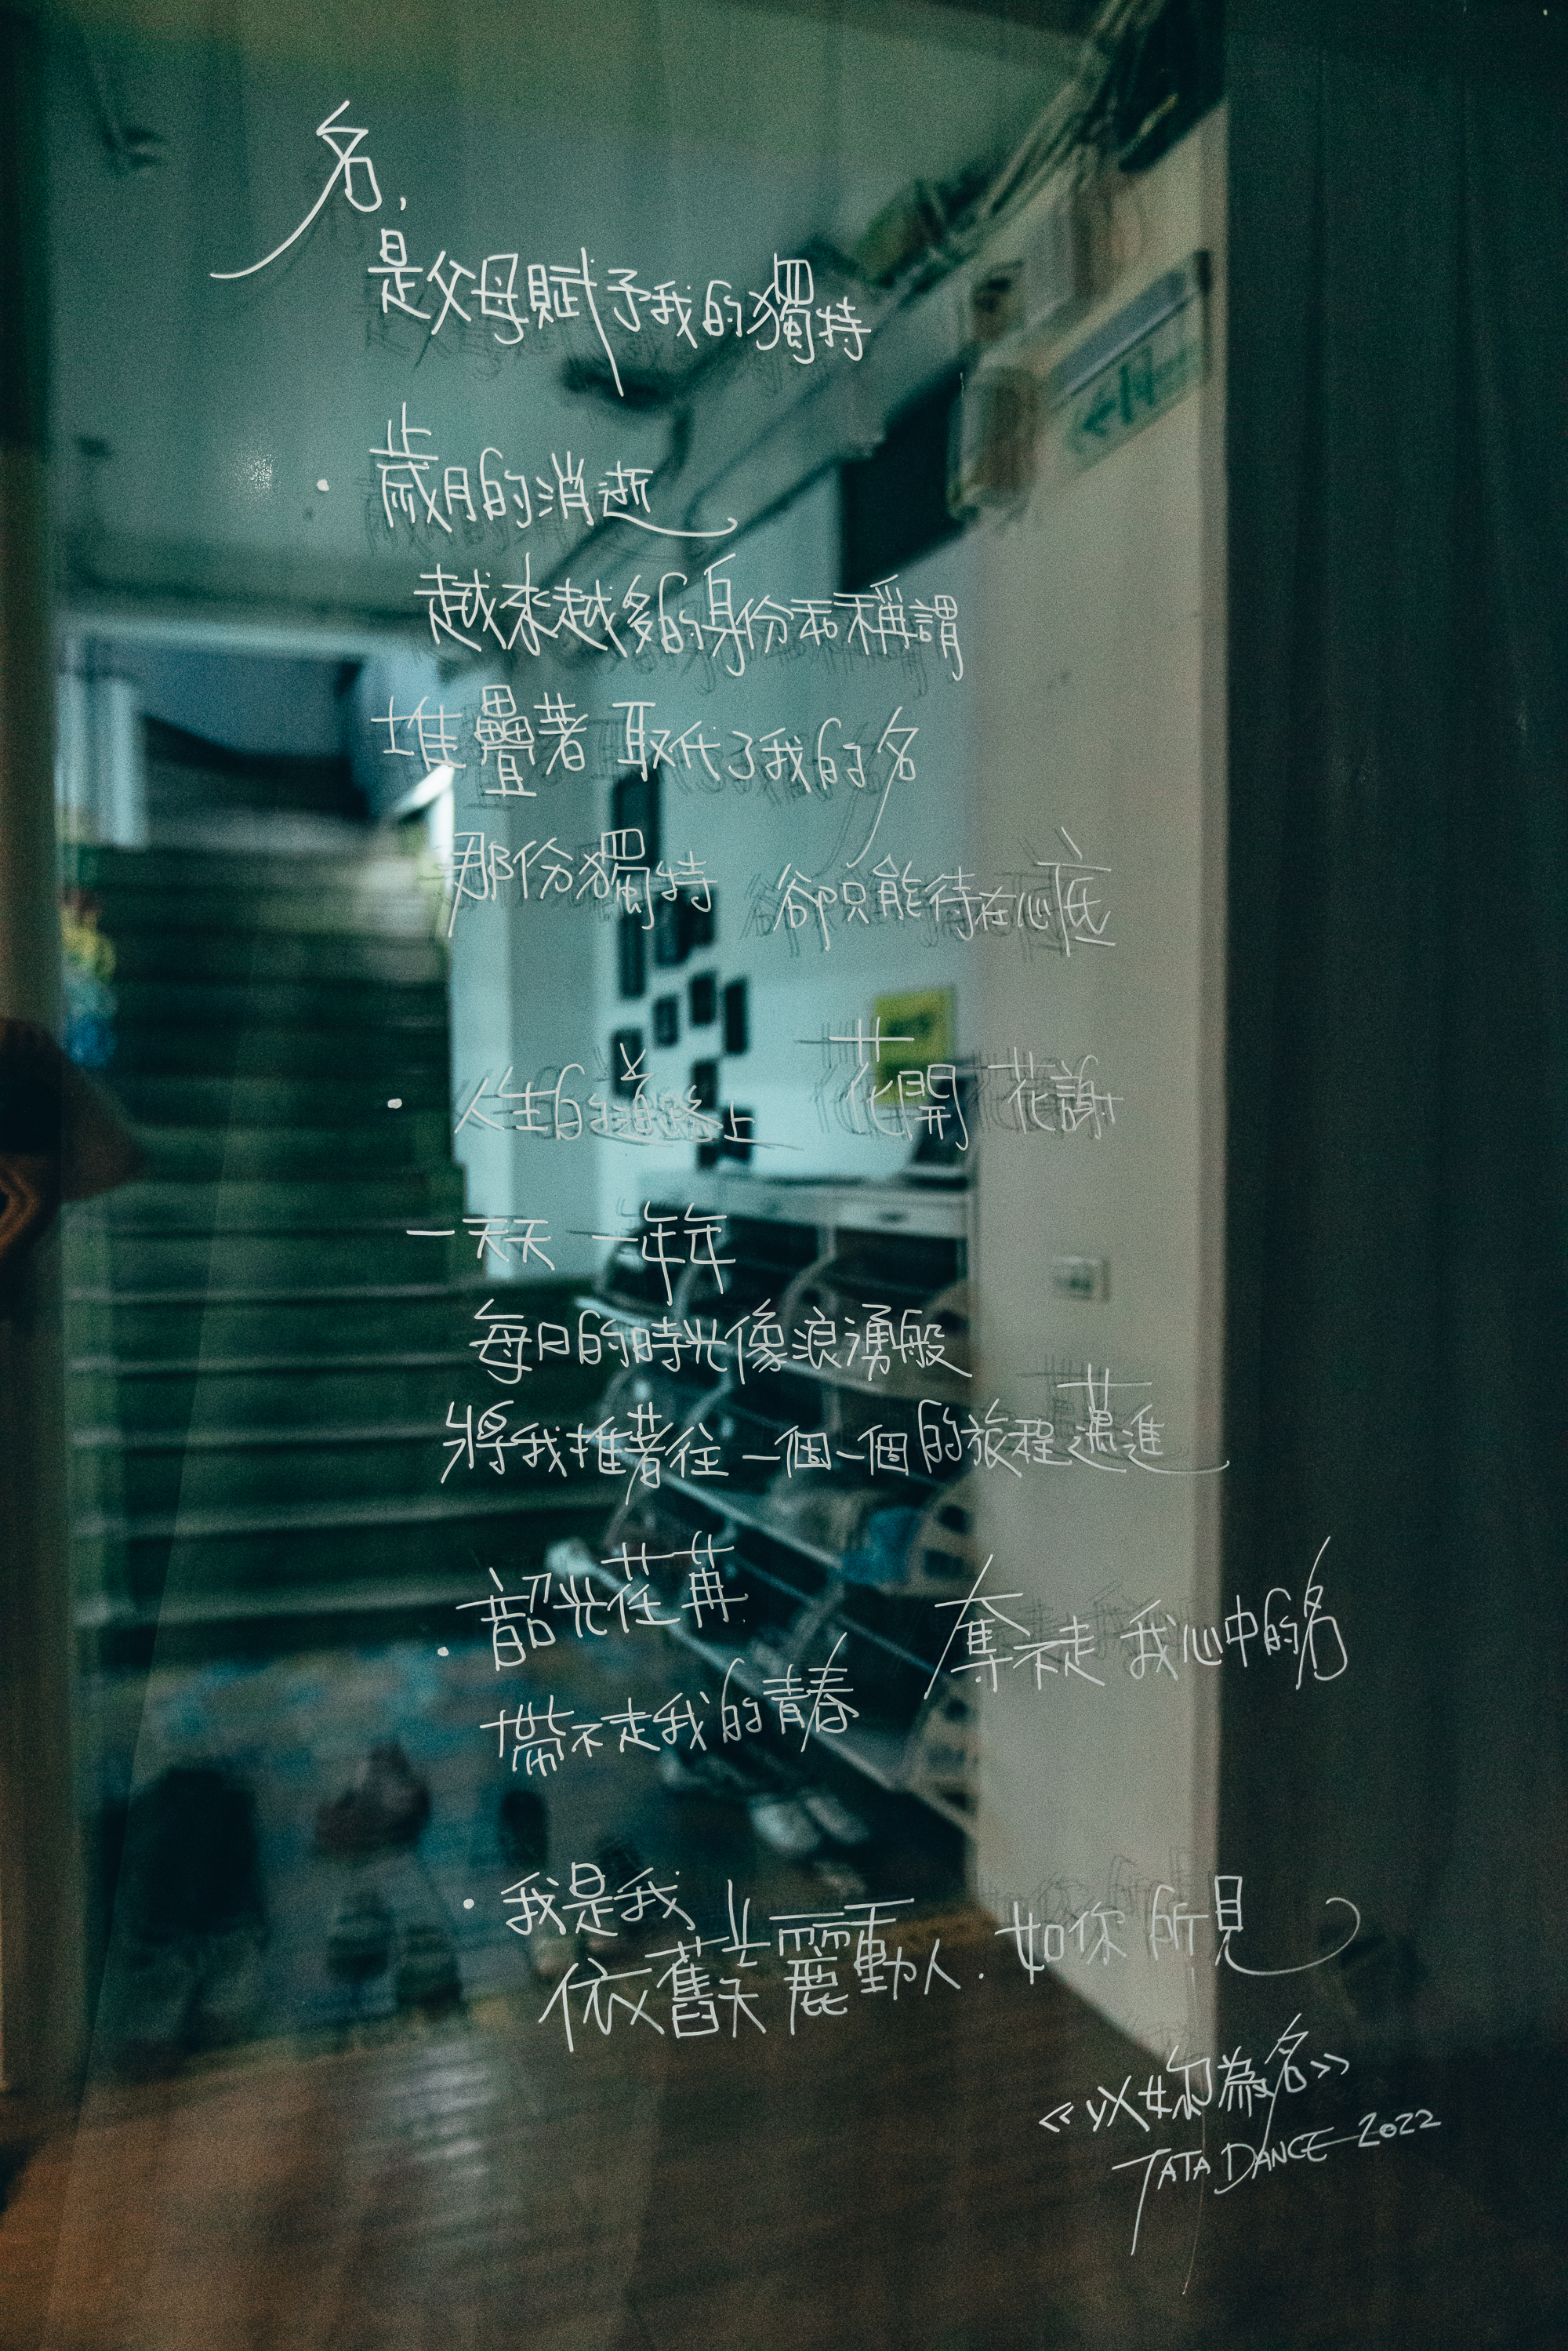 名,
是父母賦予我的獨特
·歲月的消逝
越來越多的身份和稱謂
堆疊著 取代了我的名
那份獨特 卻只能待在心底
·人生的道路上 花開花謝
一天天 一年年
每日的時光像浪湧般
將我推著往一個一個的旅程邁進
·韶光荏苒 奪不走我心中的名
帶不走我的青春
·我是我,
依舊美麗動人.如你所見
《以妳為名》
TATA DANCE 2022